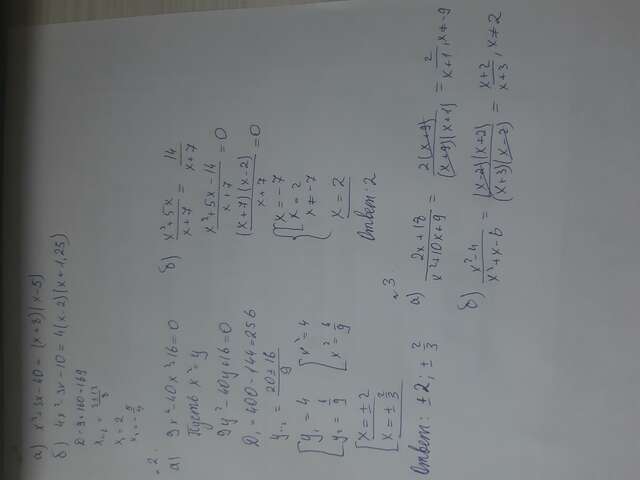 а) x²+3x-40 = (x+8)(x-5)
б) 4x²-3x-10 = 4(x-2)(x+1,25)
D=9+160=169
x₁,₂ = (3±13)/8
x₁ = 2
x₂ = -5/4
№2.
а) 9x⁴-40x²+16=0
Пусть x² = y
9y²-40y+16=0
D₁ = 400-144=256
y₁,₂ = (20±16)/9
[y₁ = 4 [x² = 4
[y₂ = 4/9 [x² = 4/9
[x = ±2
[x = ±2/3
Ответ: ±2; ±2/3
б) (x²+5x)/(x+7) = 14/(x+7)
(x²+5x-14)/(x+7) = 0
((x+7)(x-2))/(x+7) = 0
{[x = -7
{[x = 2
{x ≠ -7
x = 2
Ответ: 2
№3
а) (2x+18)/(x²+10x+9) = (2(x+9))/((x+9)(x+1)) = 2/(x+1), x≠-9
б) (x²-4)/(x²+x-6) = ((x-2)(x+2))/((x+3)(x-2)) = (x+2)/(x+3), x≠2